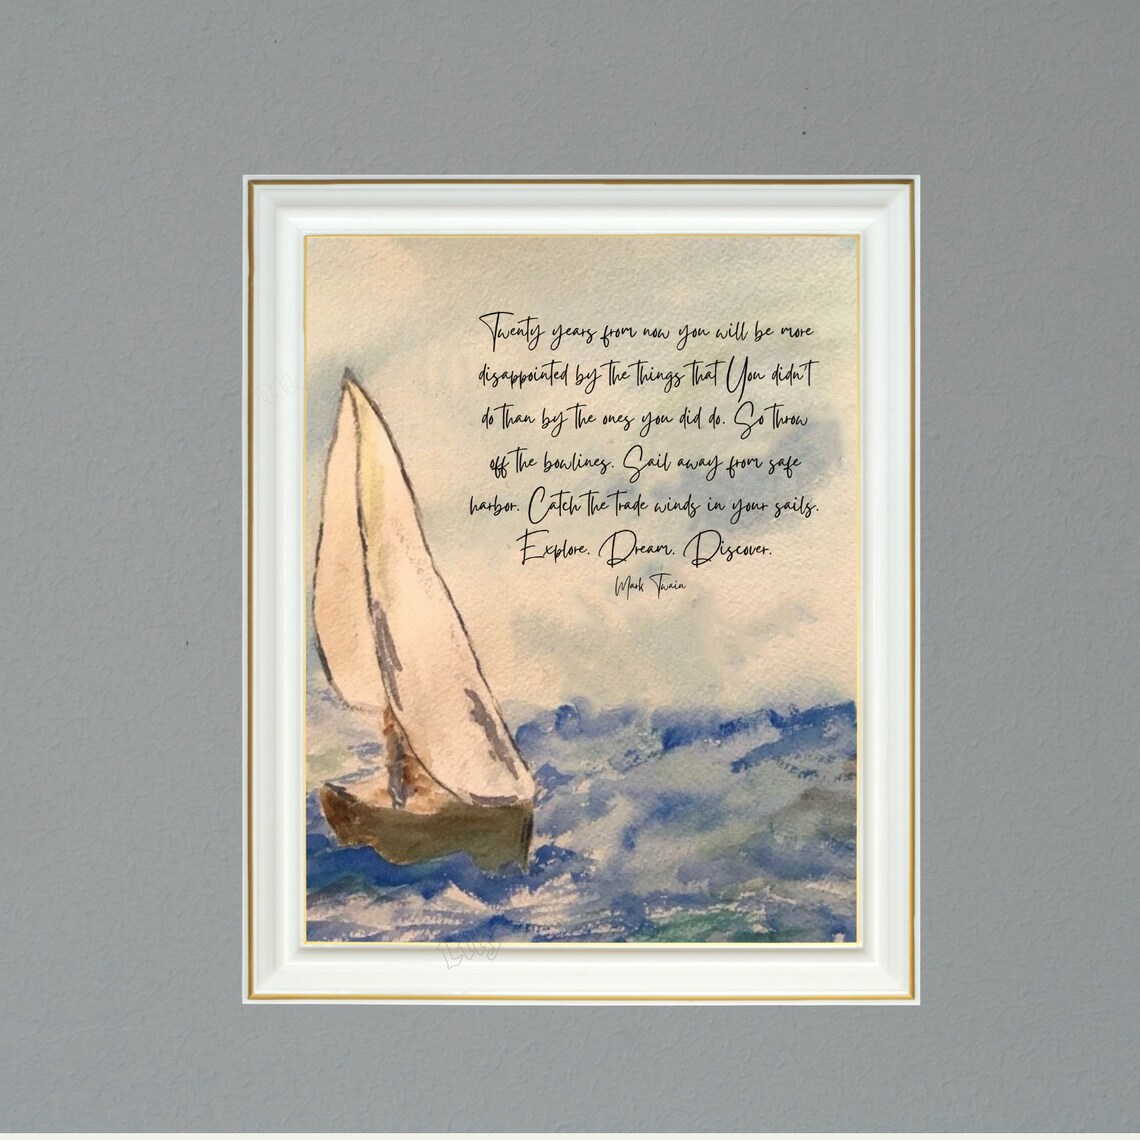 Twenty years from now you will be more
disappointed by the things that You didn't
do than by the ones you did do. So throw
off the bowlines. Sail away from safe
harbor. Catch the trade winds in your sails.
Explore. Dream. Discover.
Mark Twain
Lily